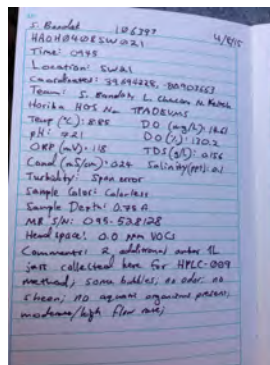 S. Bandak 106397 4/8/15
HA0H0408SW021
Time: 0945
Location: SW21
Coordinates: 39.694228, -80.903663
Team: S. Bandak, L. Chacon N.
Horiba HOS No.
Temp (°C): 8.85 DO (mg/L):
pH: DO (%): 130.2
ORP (mV): 118 TDS (g/L): 0.156
Cond (mS/cm): 024 Salinity (ppt): 0.1
Turbidity: Span error
Sample Color: Colorless
Sample Depth: 0.75 ft
MB S/N: 095-528128
Head space: 0.0 ppm VOCs
Comments: 2 additional amber 1L
jars collected here for HPLC-009
method; some bubbles; no odor; no
sheen; no aquatic organisms present;
moderate/high flow rate;